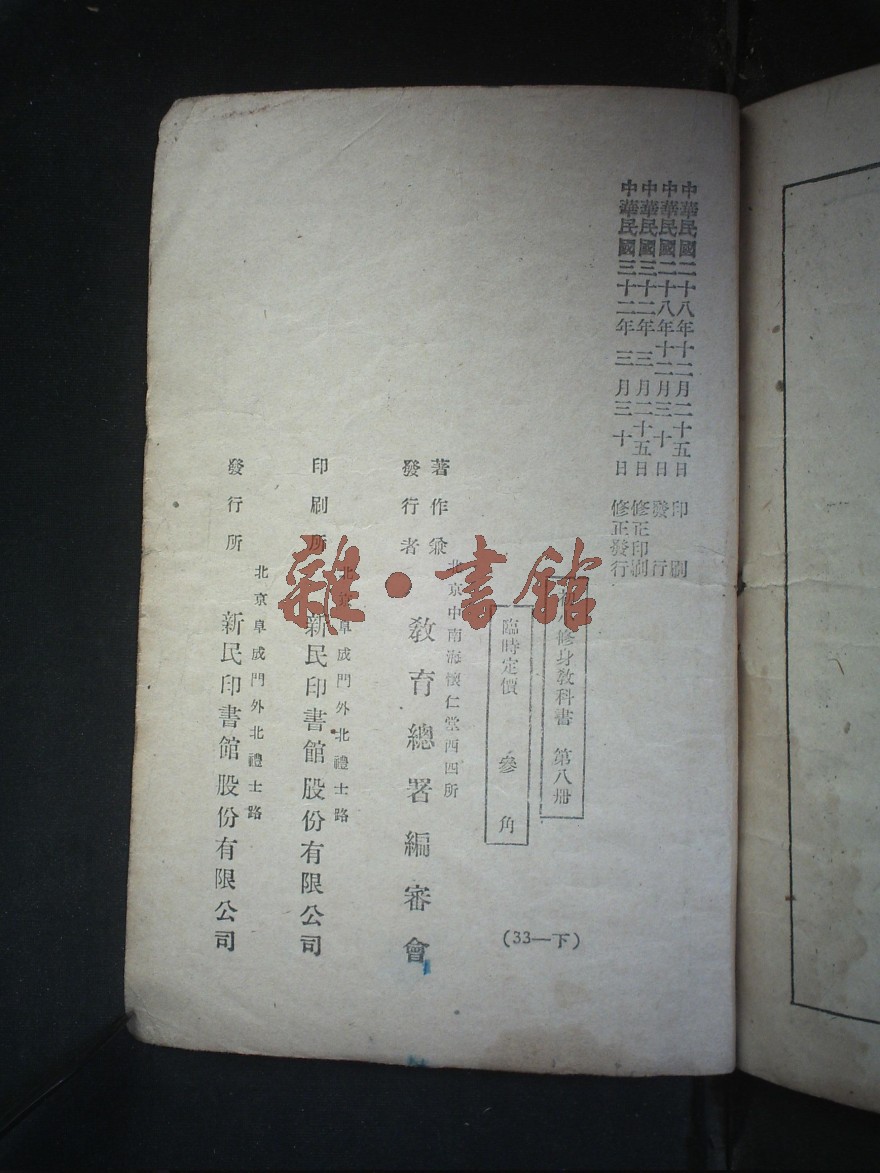 中華民國二十八年十二月二十五日 印刷
中華民國二十八年十二月三十日 發行
中華民國三十二年三月二十五日 修正印刷
中華民國三十二年三月三十日 修正發行
修身教科書 第八册
臨時定價 參角
(33—下)
著作兼
發行者
北京中南海懷仁堂西四所
教育總署編審會
印刷所
北京阜成門外北禮士路
新民印書館股份有限公司
發行所
北京阜成門外北禮士路
新民印書館股份有限公司
雜·書館